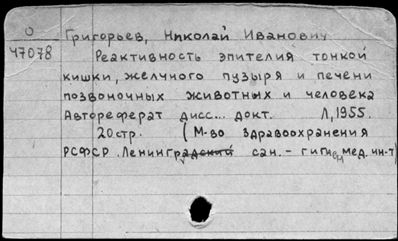 О
Григорьев, Николай Иванович
47078
Реактивность эпителия тонкой
кишки, желчного пузыря и печени
позвоночных животных и человека
Автореферат дисс... докт. Л, 1955.
20стр. (М-во здравоохранения
РСФСР. Ленинградский сан.-гигиен мед. ин-т)